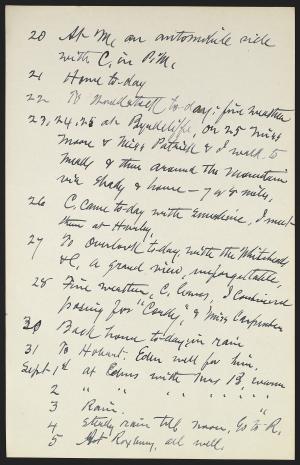 20 At M, an automobile ride
with C. in P.M.
21 Home to-day
22 To Woodstock to-day; fine weather
23, 24, 25 at Byrdcliffe, on 25 Miss
Moore & Miss Patrick & I walk to
Meads & then around the Mountain
via Shady & home — 7 or 8 miles,
26 C. came to-day with I meet
them at Hurley.
27 To Overlook to-day, with the Whiteheads
& C, a grand view, unforgettable,
28 Fine weather, C. leaves, I continued
posing for "Corky," & Miss Carpenter
30 Back home to-day, in rain
31 To Hobart. Eden well for him.
Sept. 1st at Edens with Mrs B, warm
2 " " " " "
3 Rain.
4 Steady rain till noon, Go to R,
5 At Roxbury, all well.